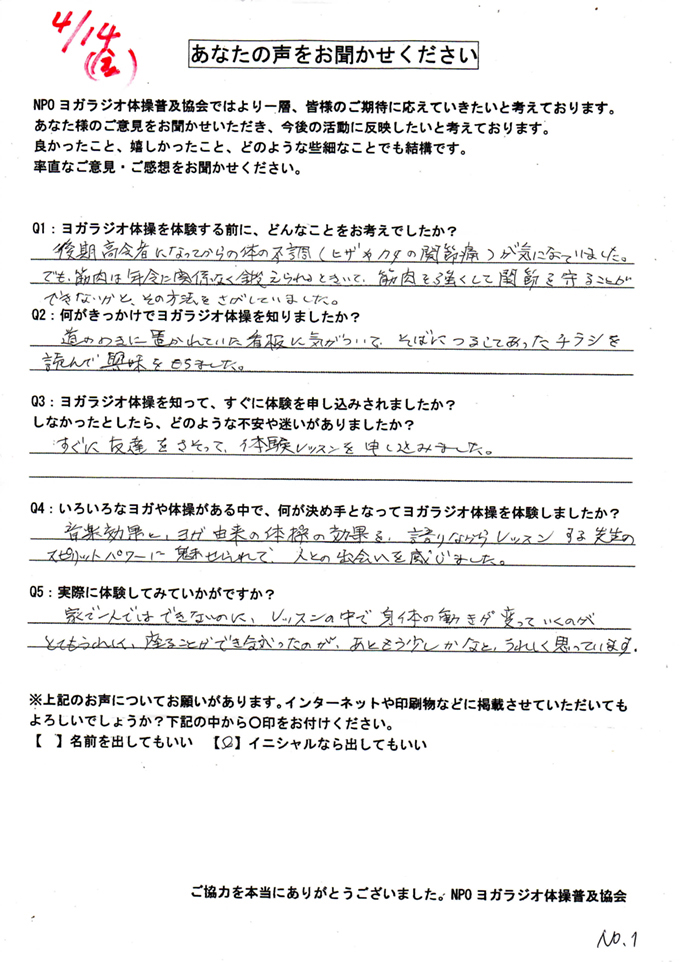 4/14
(金)
あなたの声をお聞かせください
NPOヨガラジオ体操普及協会ではより一層、皆様のご期待に応えていきたいと考えております。
あなた様のご意見をお聞かせいただき、今後の活動に反映したいと考えております。
良かったこと、嬉しかったこと、どのような些細なことでも結構です。
率直なご意見・ご感想をお聞かせください。
Q1：ヨガラジオ体操を体験する前に、どんなことをお考えでしたか？
後期高令者になってからの体の不調（ヒザやカタの関節痛）が気になっていました。
でも、筋肉は年令に関係なく鍛えられるときいて、筋肉を強くして関節を守ることが
できないかと、その方法をさがしていました。
Q2：何がきっかけでヨガラジオ体操を知りましたか？
道のわきに置かれていた看板に気がついて、そばにつるしてあったチラシを
読んで興味をもちました。
Q3：ヨガラジオ体操を知って、すぐに体験を申し込みされましたか？
しなかったとしたら、どのような不安や迷いがありましたか？
すぐに友達をさそって、体験レッスンを申し込みました。
Q4：いろいろなヨガや体操がある中で、何が決め手となってヨガラジオ体操を体験しましたか？
音楽効果と、ヨガ由来の体操の効果を、語りながらレッスンする先生の
スピリットパワーに魅せられて、人との出会いを感じました。
Q5：実際に体験してみていかがですか？
家で一人ではできないのに、レッスンの中で身体の動きが変っていくのが
とてもうれしく、座ることができなかったのが、あともう少しかなと、うれしく思っています.
※上記のお声についてお願いがあります。インターネットや印刷物などに掲載させていただいても
よろしいでしょうか？下記の中から〇印をお付けください。
【　】名前を出してもいい　【○】イニシャルなら出してもいい
ご協力を本当にありがとうございました。NPOヨガラジオ体操普及協会
NO.1